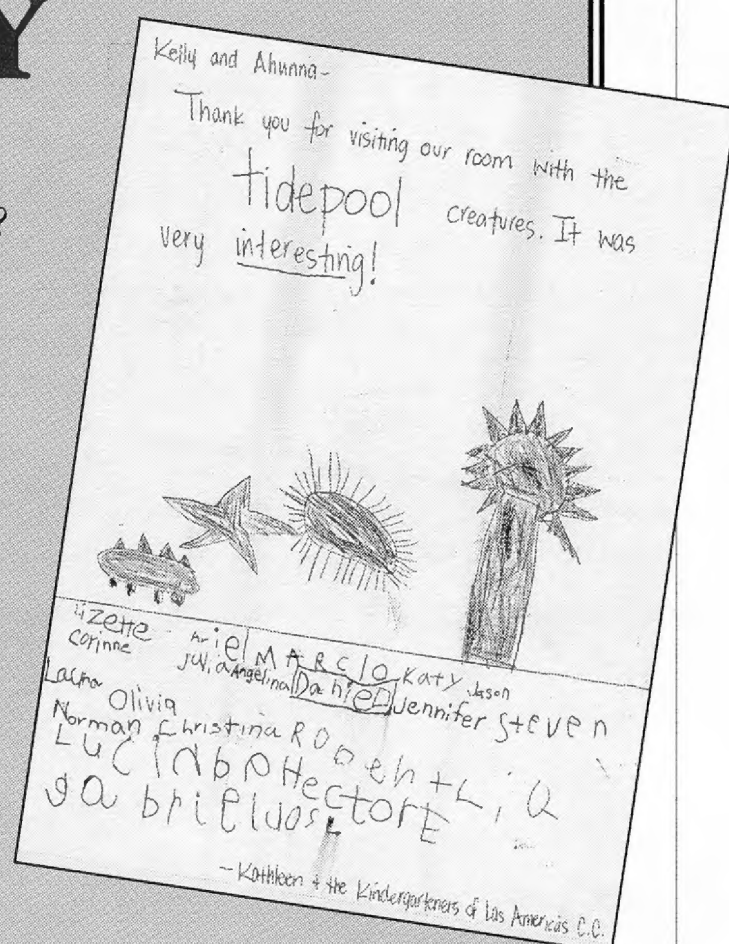 Y
?
Keily and Ahunna-
Thank you for visiting our room with the
tidepool creatures. It was
very interesting!
Lizette Ariel MARCIO Katy Jason
Corinne Julia Angelina Daniel Jennifer Steven
Laura Olivia
Norman Christina
Hector
gabriel
-- Kathleen + the Kindergarteners of Las Americas C.C.